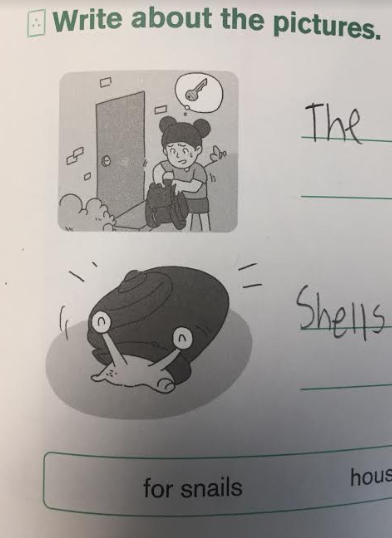 Write about the pictures.
The
Shells
for snails hous